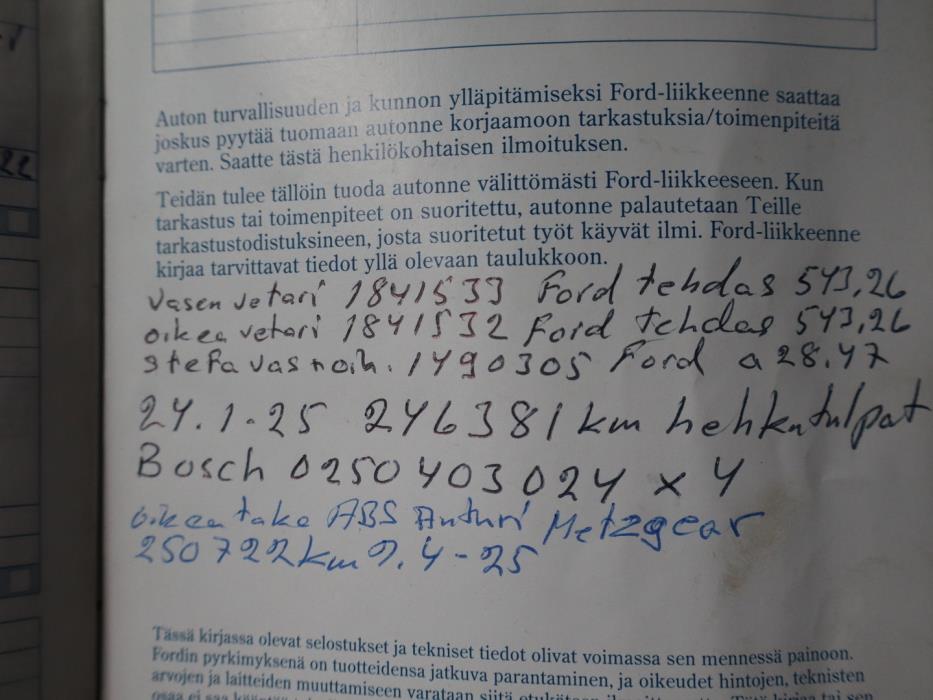 22
Auton turvallisuuden ja kunnon ylläpitämiseksi Ford-liikkeenne saattaa
joskus pyytää tuomaan autonne korjaamoon tarkastuksia/toimenpiteitä
varten. Saatte tästä henkilökohtaisen ilmoituksen.
Teidän tulee tällöin tuoda autonne välittömästi Ford-liikkeeseen. Kun
tarkastus tai toimenpiteet on suoritettu, autonne palautetaan Teille
tarkastustodistuksineen, josta suoritetut työt käyvät ilmi. Ford-liikkeenne
kirjaa tarvittavat tiedot yllä olevaan taulukkoon.
Vasen vetari 1841533 Ford tehdas 543,26
oikea vetari 1841532 Ford tehdas 543,26
stefa vas noih. 1490305 Ford a 28.47
24.1-25 246381 km hehkutulpat
Bosch 0250403024 x 4
oikea taka ABS Anturi Metzgear
250722 km 9.4-25
Tässä kirjassa olevat selostukset ja tekniset tiedot olivat voimassa sen mennessä painoon.
Fordin pyrkimyksenä on tuotteidensa jatkuva parantaminen, ja oikeudet hintojen, teknisten
arvojen ja laitteiden muuttamiseen varataan siitä